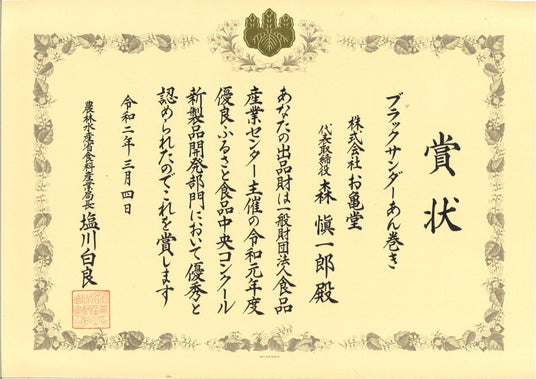 賞状
ブラックサンダーあん巻き
株式会社お亀堂
代表取締役 森愼一郎殿
あなたの出品財は一般財団法人食品
産業センター主催の令和元年度
優良ふるさと食品中央コンクール
新製品開発部門において優秀と
認められたのでこれを賞します
令和二年三月四日
農林水産省食料産業局長 塩川白良